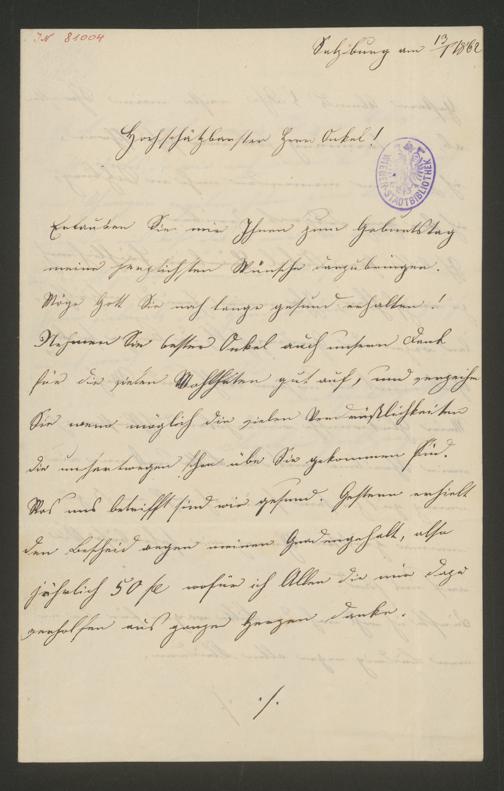 IN 81004
Salzburg am 13/1 1862
Hochschätzbarster Herr Onkel!
WIENER STADTBIBLIOTHEK
Erlauben Sie mir Ihnen zum Geburtstag
meine herzlichsten Wünsche darzubringen.
Möge Gott Sie noch lange gesund erhalten!
Nehmen Sie bester Onkel auch unsern Dank
für die vielen Wohlthaten gut auf, und verzeihen
Sie wenn möglich die vielen Verdrüßlichkeiten
die unsertwegen schon über Sie gekommen sind.
Was uns betrifft sind wir gesund. Gestern erhielt
den Bescheid wegen meinen Gnadengehalt, also
jährlich 50 fl wofür ich Allen die mir dazu
verholfen aus ganzen Herzen danke.
./.